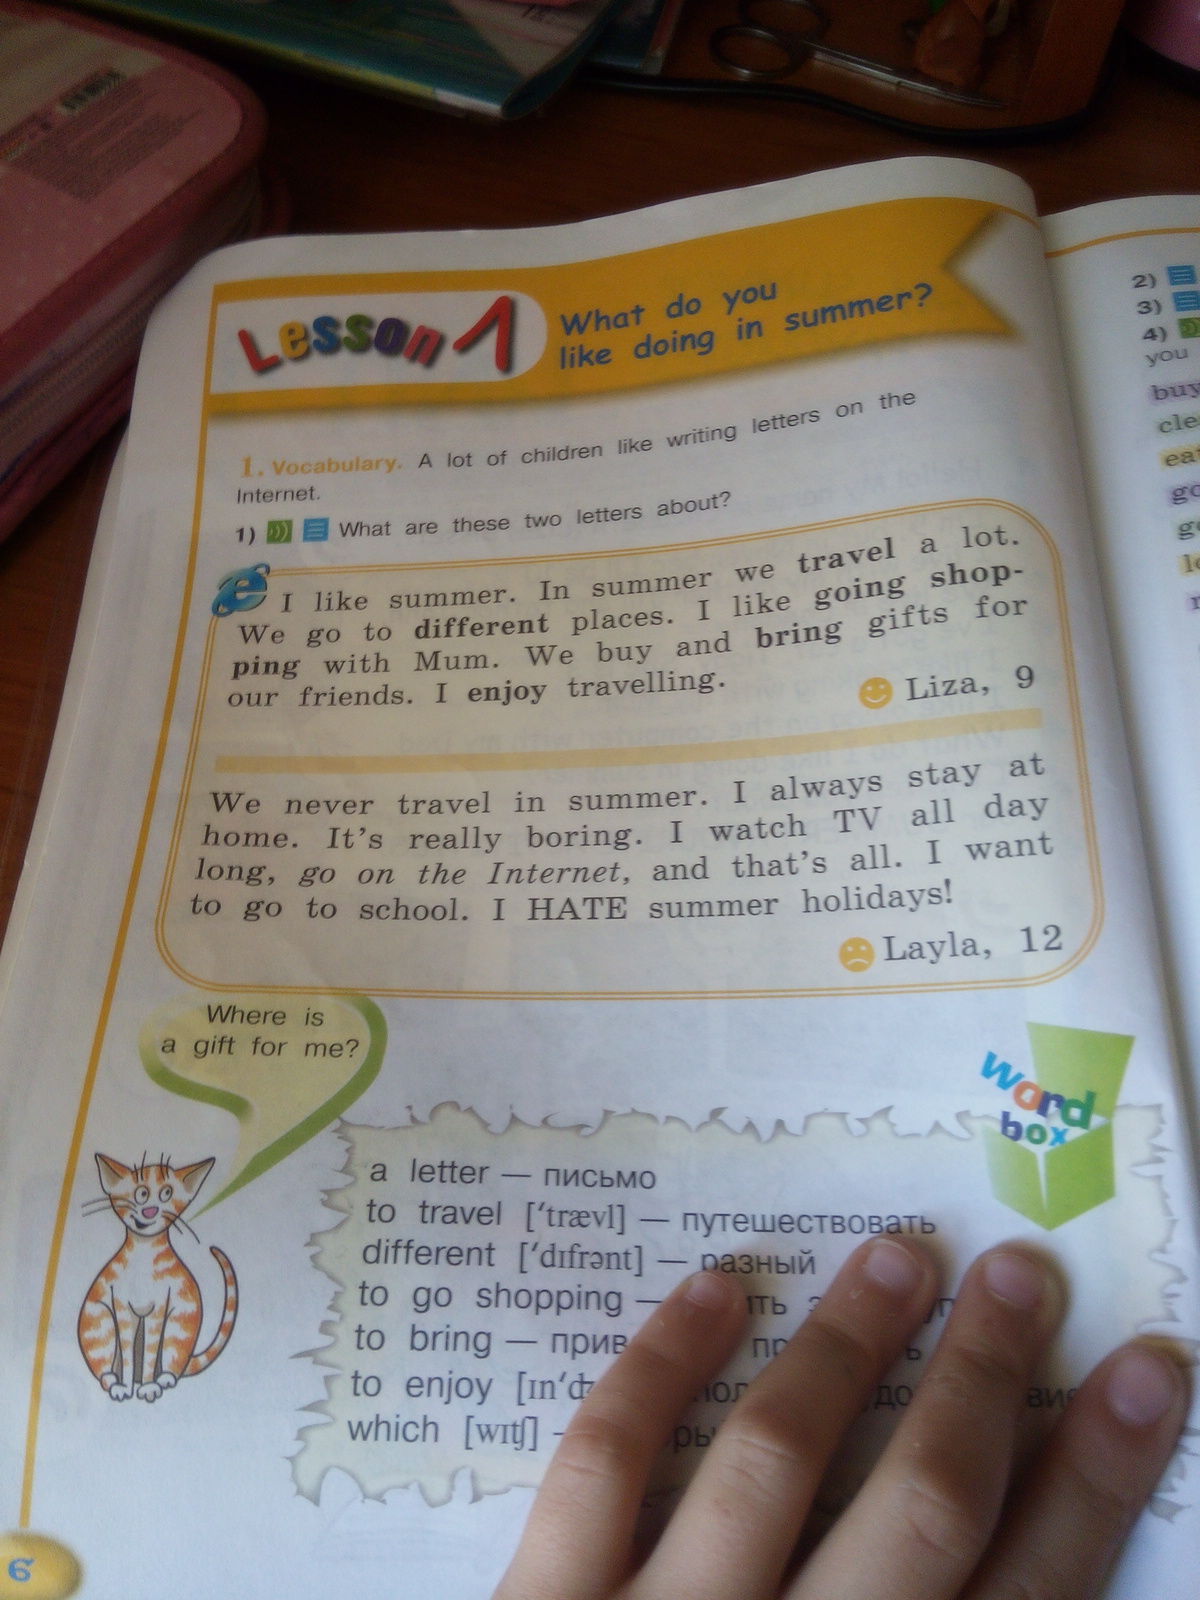 Lesson 1
What do you
like doing in summer?
1. Vocabulary. A lot of children like writing letters on the
Internet.
1) What are these two letters about?
I like summer. In summer we travel a lot.
We go to different places. I like going shop-
ping with Mum. We buy and bring gifts for
our friends. I enjoy travelling.
Liza, 9
We never travel in summer. I always stay at
home. It's really boring. I watch TV all day
long, go on the Internet, and that's all. I want
to go to school. I HATE summer holidays!
Layla, 12
Where is
a gift for me?
word
box
a letter — письмо
to travel [ˈtrævl] — путешествовать
different [ˈdɪfrənt] — разный
to go shopping —
to bring —
to enjoy
which [wɪtʃ] -
6
2)
3)
4)
you
buy